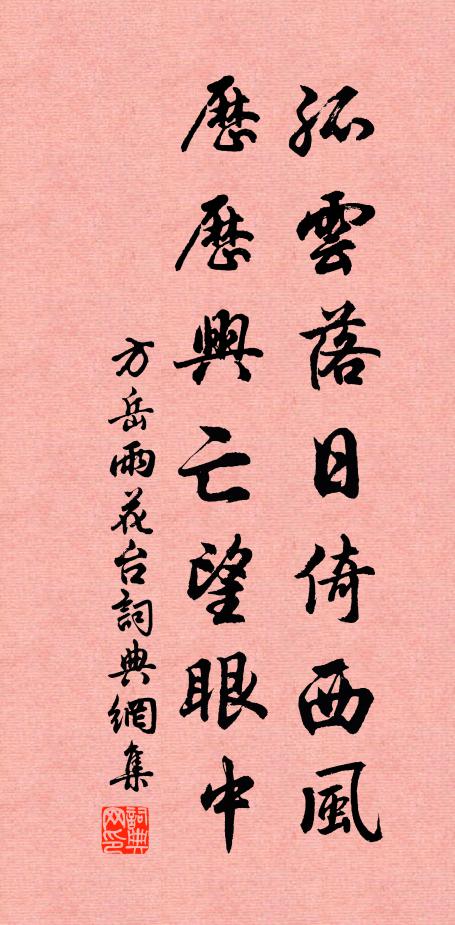 孤雲落日倚西風
歷歷興亡望眼中
方岳雨花台詞典網集
詞典网印